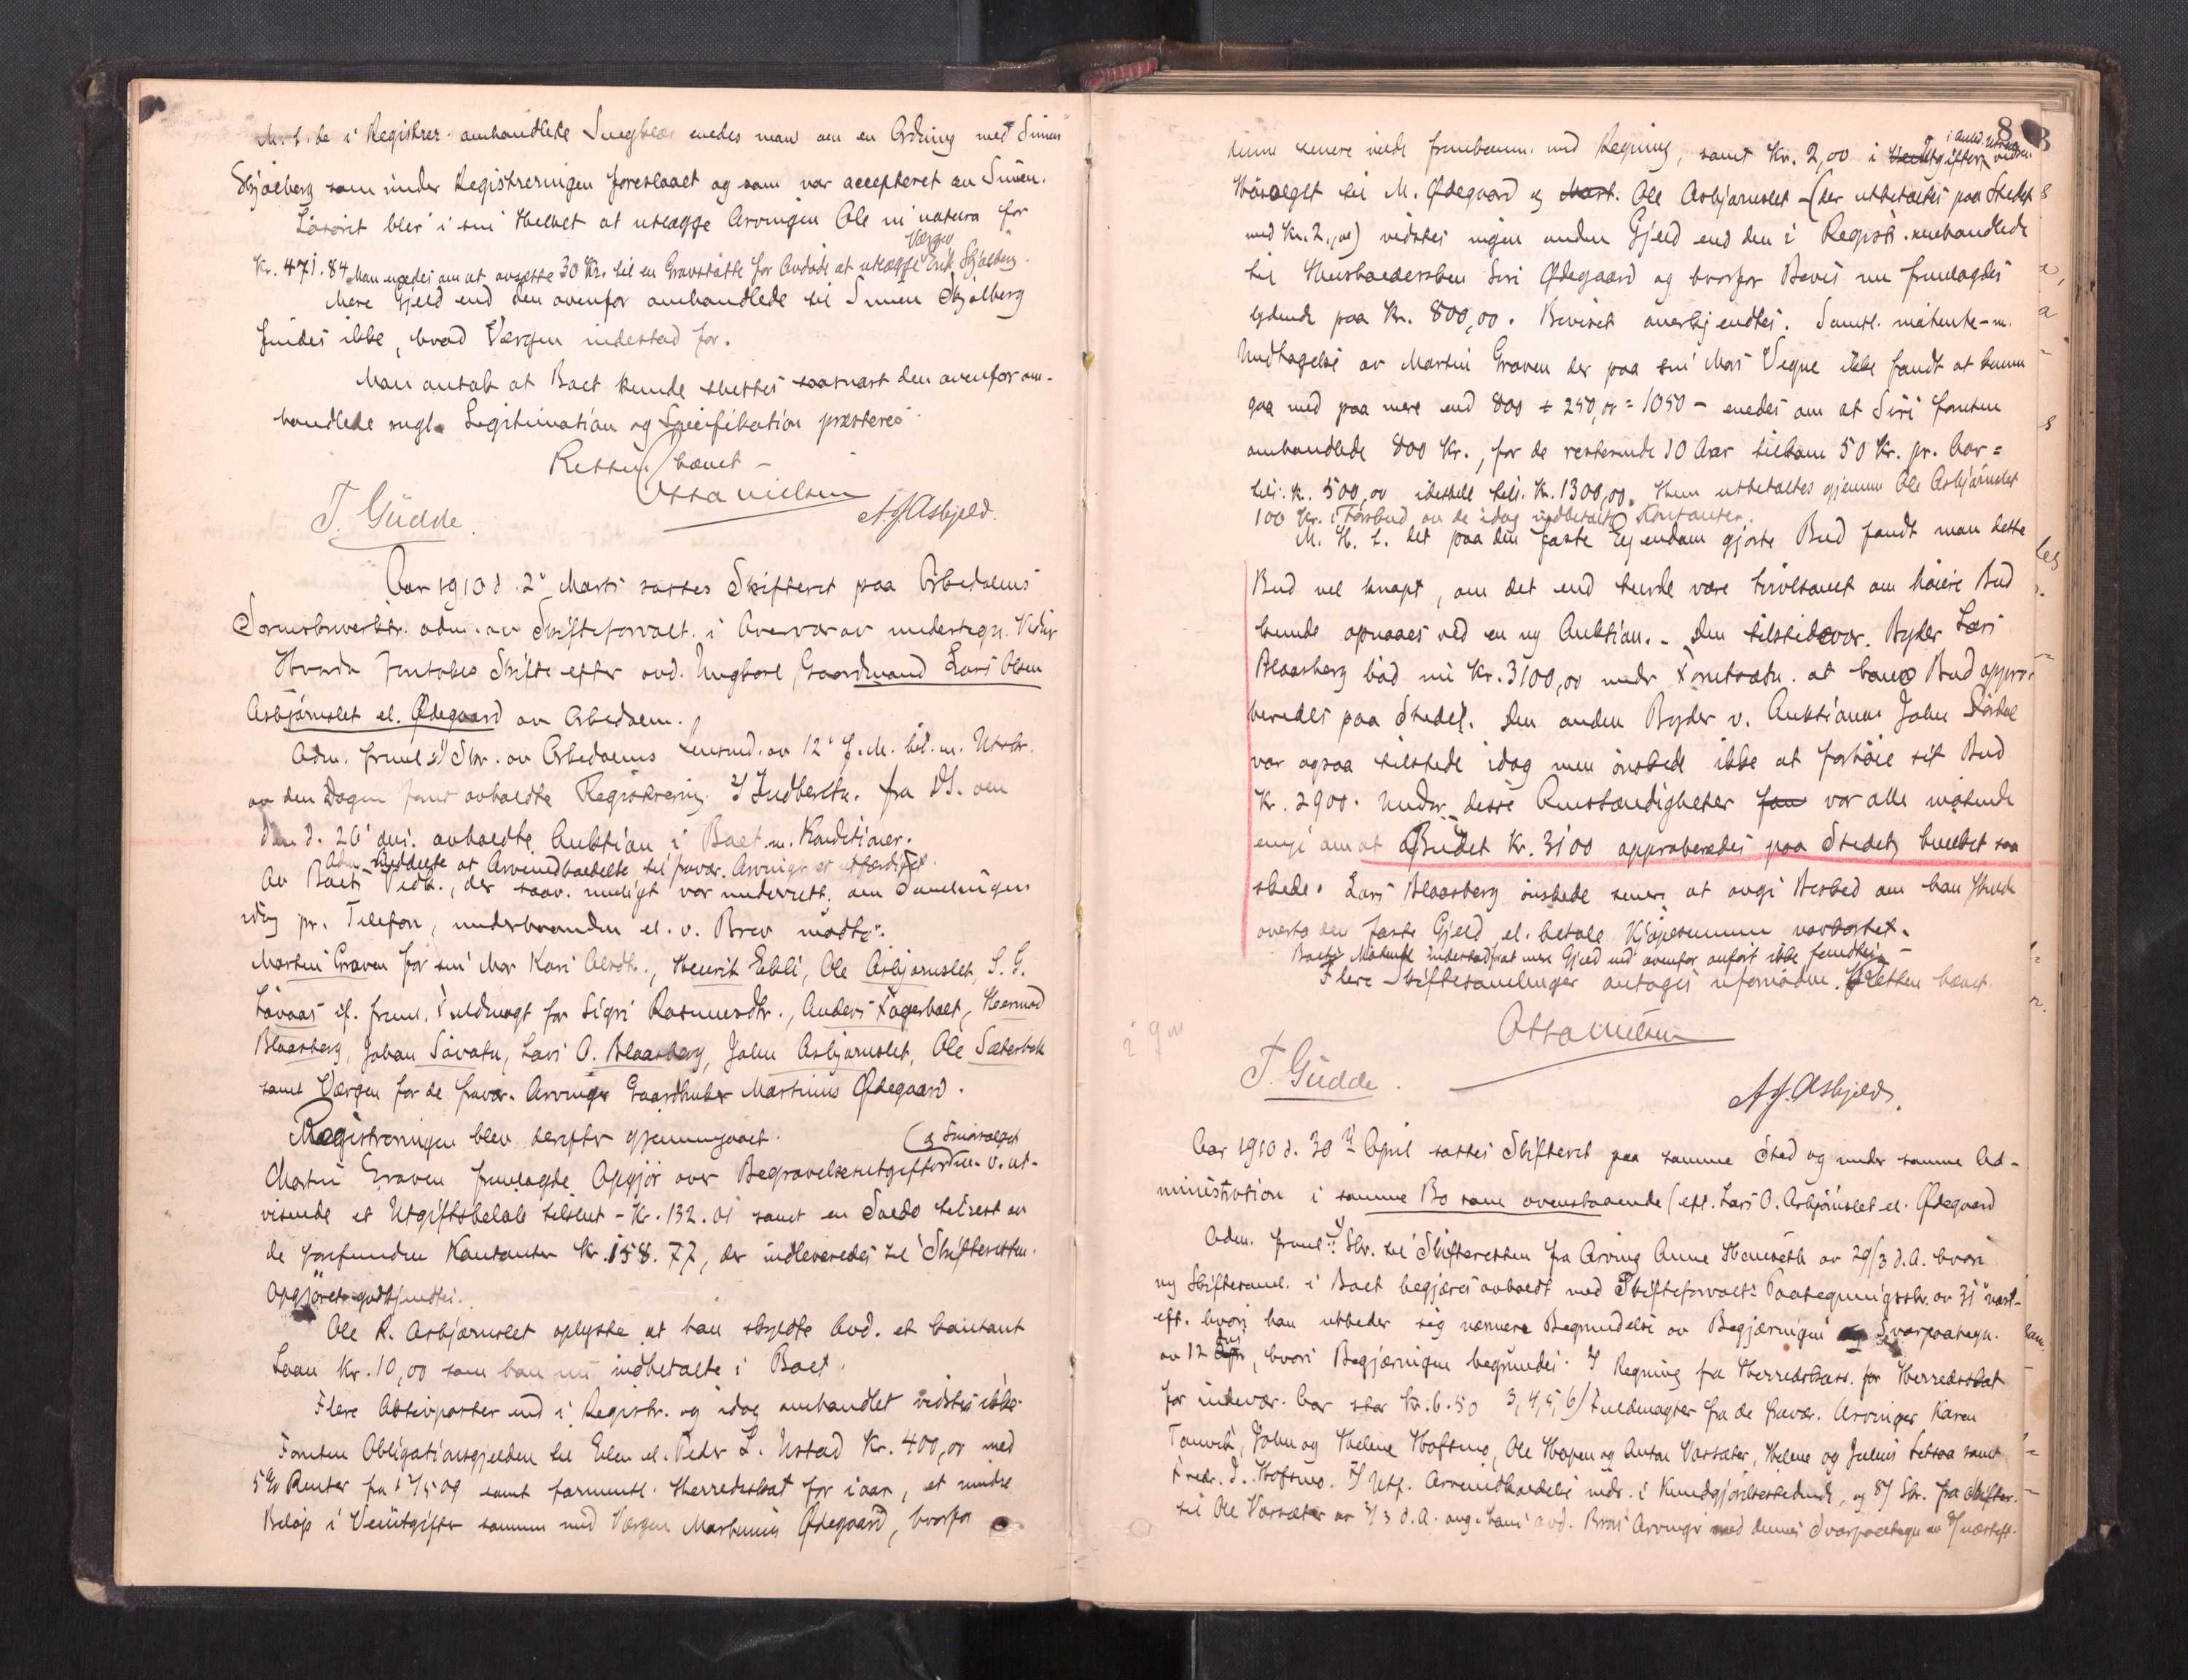 M. H. t. de i Registrer. omhandlede enedes man om en Ordning med Simen
Skjølberg som under Registreringen foreslaaet og som var accepteret av Simen.
Løsøret blev i sin Helhet at utlægge Arvingen Ole in natura for
Kr. 471.84. Man enedes om at avsætte 30 Kr. til en Gravstøtte for Avdøde at utlægge Værgen Erik Skjølberg.
Mere Gjeld end den ovenfor omhandlede til Simen Skjølberg
findes ikke, hvad Værgen indestod for.
Man antok at Boet kunde sluttes saasnart den ovenfor om-
handlede mgl. Legitimation og Specifikation præsteres.
Retten hævet –
Otto Nielsen
T. Gudde. A. J. Asbjeld.
Aar 1910 d. 2 Marts sattes Skifteret paa Orkedalens
Sorenskriverktr. adm. av Skifteforvalt. i Overvær av undertegn. Vidner
Hvorda foretokes Skifte efter avd. Ungkarl, Gaardmand Lars Olsen
Asbjørnslet el. Ødegaard av Orkedalen.
Adm. freml. 1) Skr. av Orkedalens Lensmd. av 12 f. M. bil. m. Utskr.
av den Dagen forut avholdte Registrering. 2) Indberetn. fra Ds. om
den d. 26 avholdte Auktion i Boet m. Konditioner.
Adm. meddelte at Arveindkaldelse til fravær. Arvinger er utfærdiget.
Av Boets Vedk., der saav. muligt var underrett. om Samlingen
idag pr. Telefon, underhaanden el. v. Brev mødte:
Martin Graven for sin Mor Kari Olsdtr., Henrik Ekli, Ole Asbjørnslet, S. G.
Løvaas if. freml. Fuldmagt for Sigri Rasmusdtr., Anders Fagerholt, Hermod
Blaasberg, Johan Sivatn, Lars O. Blaasberg, John Asbjørnslet, Ole Sæterbek
samt Værgen for de fravær. Arvinger Gaardbruker Martinus Ødegaard.
Registreringen blev derefter gjennemgaaet.
Martin Graven fremlagde Opgjør over Begravelsesutgifterne (& Smørsalget m. v. ut-
visende et Utgiftsbeløb tilslut – Kr. 132.01 samt en Saldo til rest av
de forefundne Kontanter Kr. 158.77, der indleveredes til Skifteretten.
Opgjøret godkjendtes.
Ole R. Asbjørnslet oplyste at han skyldte Avd. et kontant
Laan Kr. 10,00 som han nu indbetalte i Boet.
Flere Aktivposter end i Registr. og idag omhandlet vidstes ikke.
Foruten Obligationsgjelden til Eller el. Peder L. Ustad Kr. 400,00 med
5 % Renter fra samt formentl. Herredsskat for iaar, et mindre
Beløp i Veiutgifter sammen med Værgen Martinus Ødegaard, hvorfor
8
denne senere vilde fremkomme med Regning, samt Kr. 2,00 i Veiutgifter i Anled.
til M. Ødegaard og Mart. Ole Asbjørnslet – (der utbetaltes paa Stedet
med Kr. 2,00) vidstes ingen anden Gjeld end den i Registr. omhandlede
til Husholdersken Siri Ødegaard og hvorfor Bevis nu fremlagdes
lydende paa Kr. 800,00. Beviset anerkjendtes. Samtl. møtende – m.
Undtagelse av Martin Graven der paa sin Mors Vegne ikke fandt at kunne
gaa med paa mere end 800 + 250,00 = 1050 – enedes om at Siri foruten
omhandlede 800 Kr., for de resterende 10 Aar tilkom 50 Kr. pr. Aar =
tils. Kr. 500,00 idethele tils. Kr. 1300,00. Hun utbetaltes gjennem Ole Asbjørnslet
100 Kr. i Forskud av de idag indbetalte Kontanter.
M. H. t. det paa den faste Eiendom gjorte Bud fandt man dette
Bud vel knapt, om det end turde være tvilsomt om høiere Bud
kunde opnaaes ved en ny Auktion. – Den tilstedevær. Byder Lars
Blaasberg bød nu Kr. 3100,00 under Forutsætn. at hans Bud appro-
beredes paa Stedet. Den anden Byder v. Auktionen John
var ogsaa tilstede idag men ønskede ikke at forhøie sit Bud
Kr. 2900. Under disse Omstændigheter fan var alle møtende
enige om at Budet Kr. 3100 approberedes paa Stedet, hvilket saa
skede. Lars Blaasberg ønskede senere at avgi Besked om han skulde
overta den faste Gjeld el. betale Kjøpesummen uavkortet.
Boets Møtende indestod for at mere Gjeld end ovenfor anført ikke fandtes. –
Flere Skiftesamlinger antages ufornødne. Retten hævet.
Otto Nielsen
T. Gudde. A. J. Asbjeld.
Aar 1910 d. 30 April sattes Skifteret paa samme Sted og under samme Ad-
ministration i samme Bo som ovenstaaende (eft. Lars O. Asbjørnslet el. Ødegaard
Adm. freml.: 1) Skr. til Skifteretten fra Arving Anne Hammeth av 29/3 d. A. hvori
ny Skiftesaml. i Boet begjæres avholdt med Skifteforvalt. Paategningsskr. av 31 næst-
eft. hvori han utbeder sig nærmere Begrundelse av Begjæringen og Svarpaategn.
av 12 , hvori Begjæringen begrundes. 2) Regning fra Herredskass. for Herredsskat
for indevær. Aar stor Kr. 6.50 3, 4, 5, 6) Fuldmagter fra de fravær. Arvinger Karen
Tonvik, John og Helene Hoftmo, Ole Hopen og Anton Vorsæter, Helene og Julius samt
Fredr. J. Hoftmo. 7) Utf. Arveindkaldelse indr. i Kundgjørelsestidende, og 8) Skr. fra Skifter.
til Ole Vorsæter av 3/3 d. A. ang. hans avd. Brors Arvinger med dennes Svarpaategn. av næsteft.